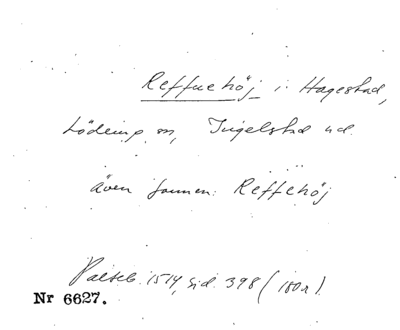 Reffnehöj i Hagestad,
Löderup sn, Ingelstad hd.
även formen: Reffehöj
Palteb. 1514, sid. 398 (180r).
Nr 6627.